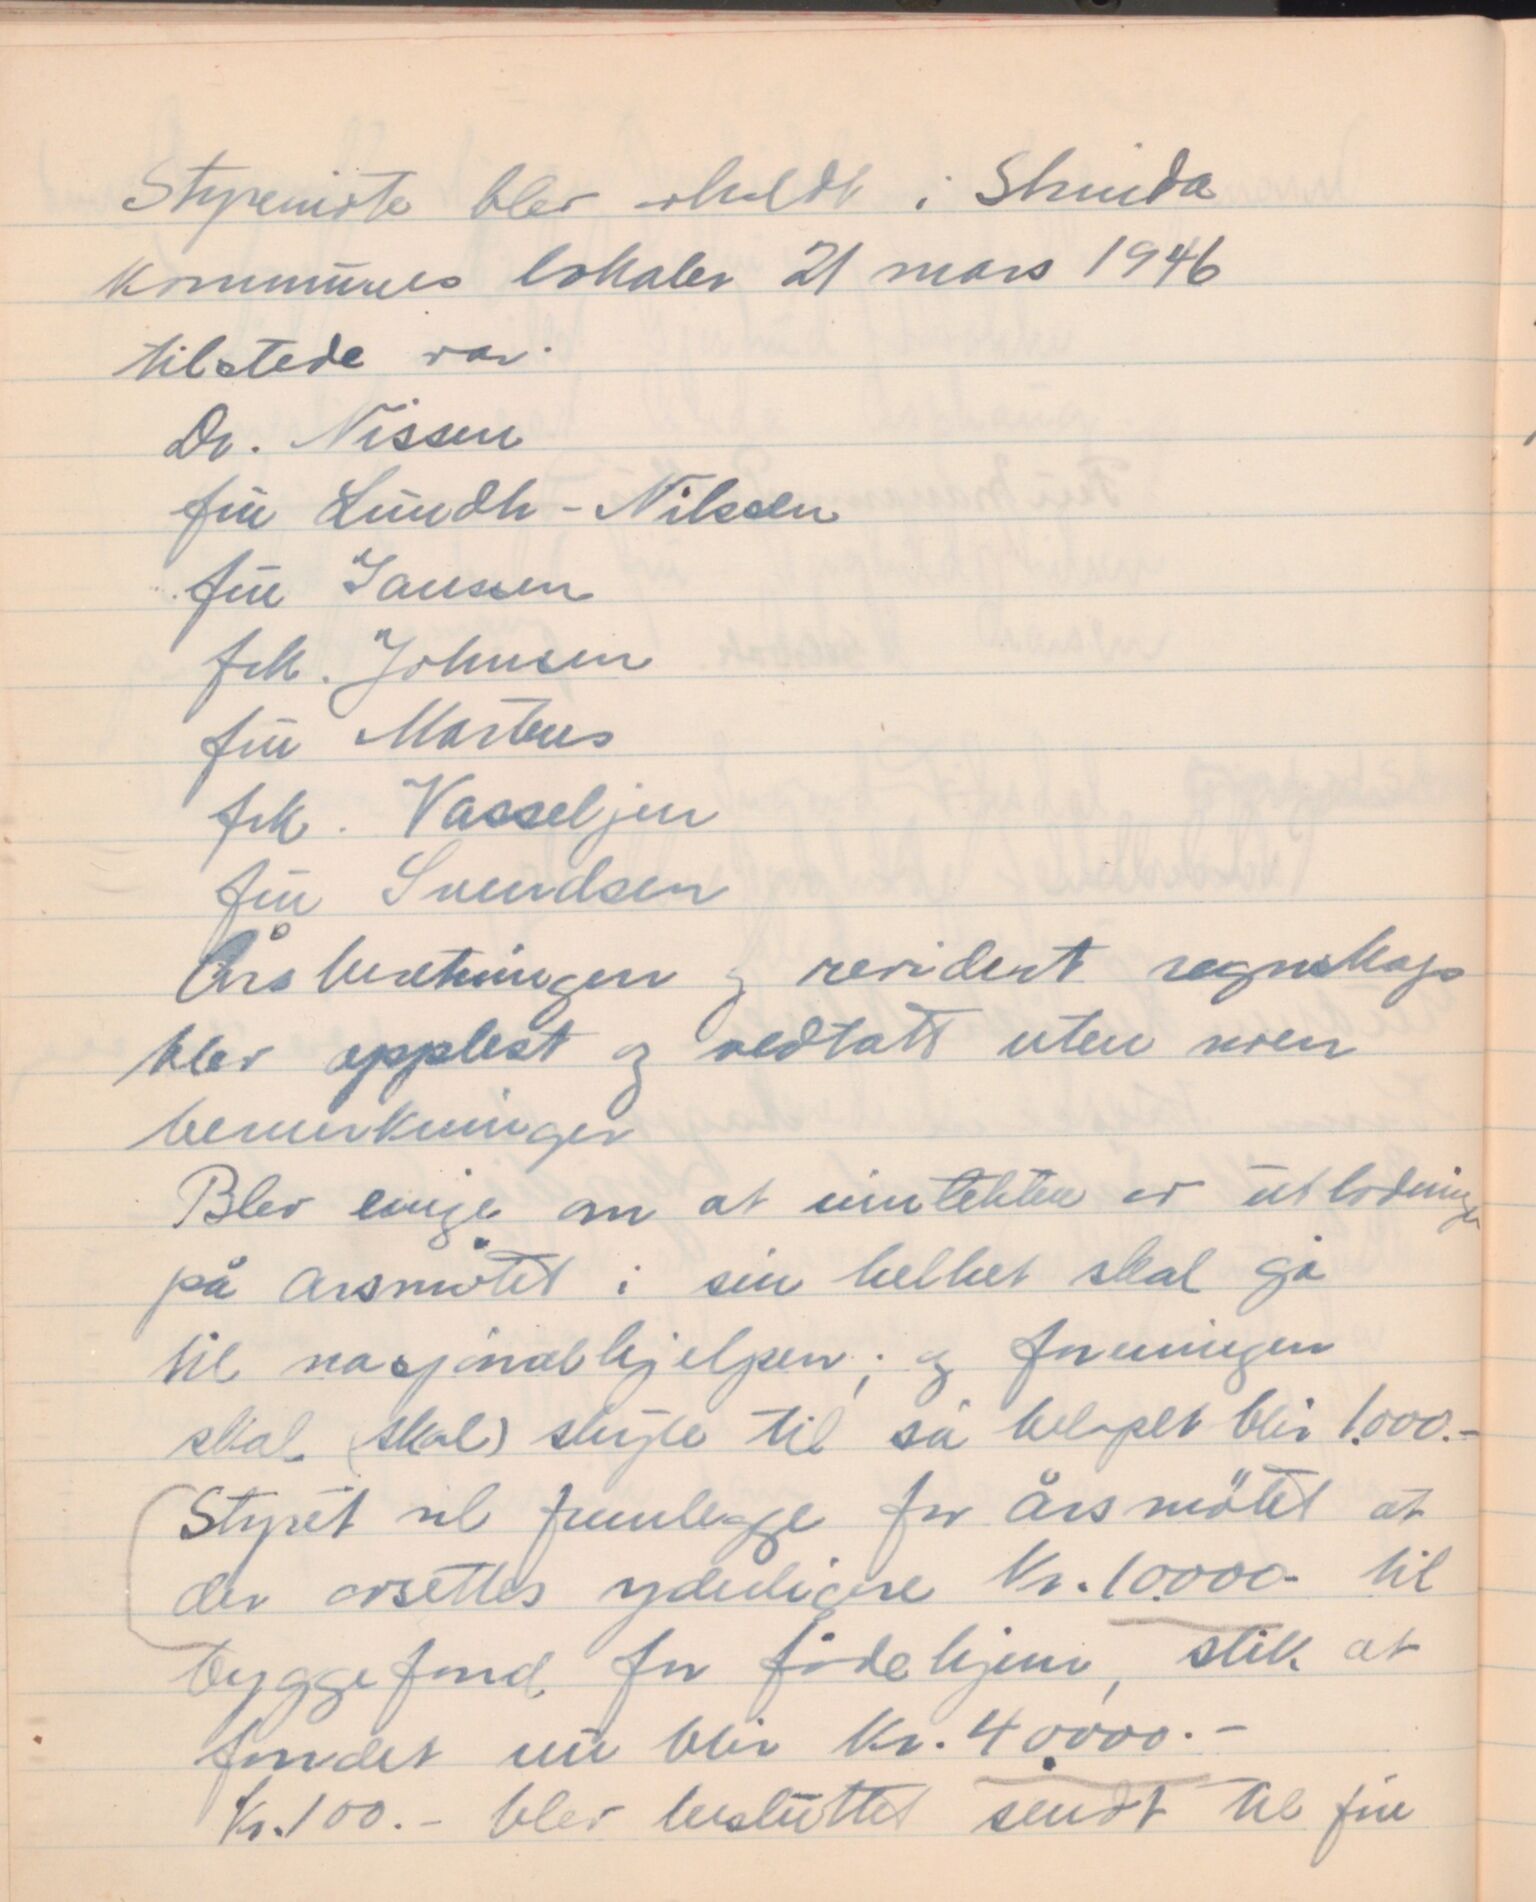 Styremøte blev avholdt i Strinda
kommunes lokaler 21 mars 1946
tilstede var.
Dr. Nissen
fru Lundh - Nilssen
fru Janssen
frk. Johnsen
fru Martens
frk. Vasseljen
fru Svendsen
Årsberetningen og revidert regnskaps
blev opplest og vedtatt uten noen
bemerkninger
Blev enige om at inntekten av utlodningen
på årsmøtet i sin helhet skal gå
til nasjonalhjelpen; og foreningen
skal (skal) skyte til så beløpet blir 1.000.-
Styret vil fremlegge for årsmötet at
der avsettes yderligere Kr. 10.000- til
byggefond for fødehjem, slik at
fondet nu blir Kr. 40.000.-
Kr. 100.- blev besluttet sendt til fru